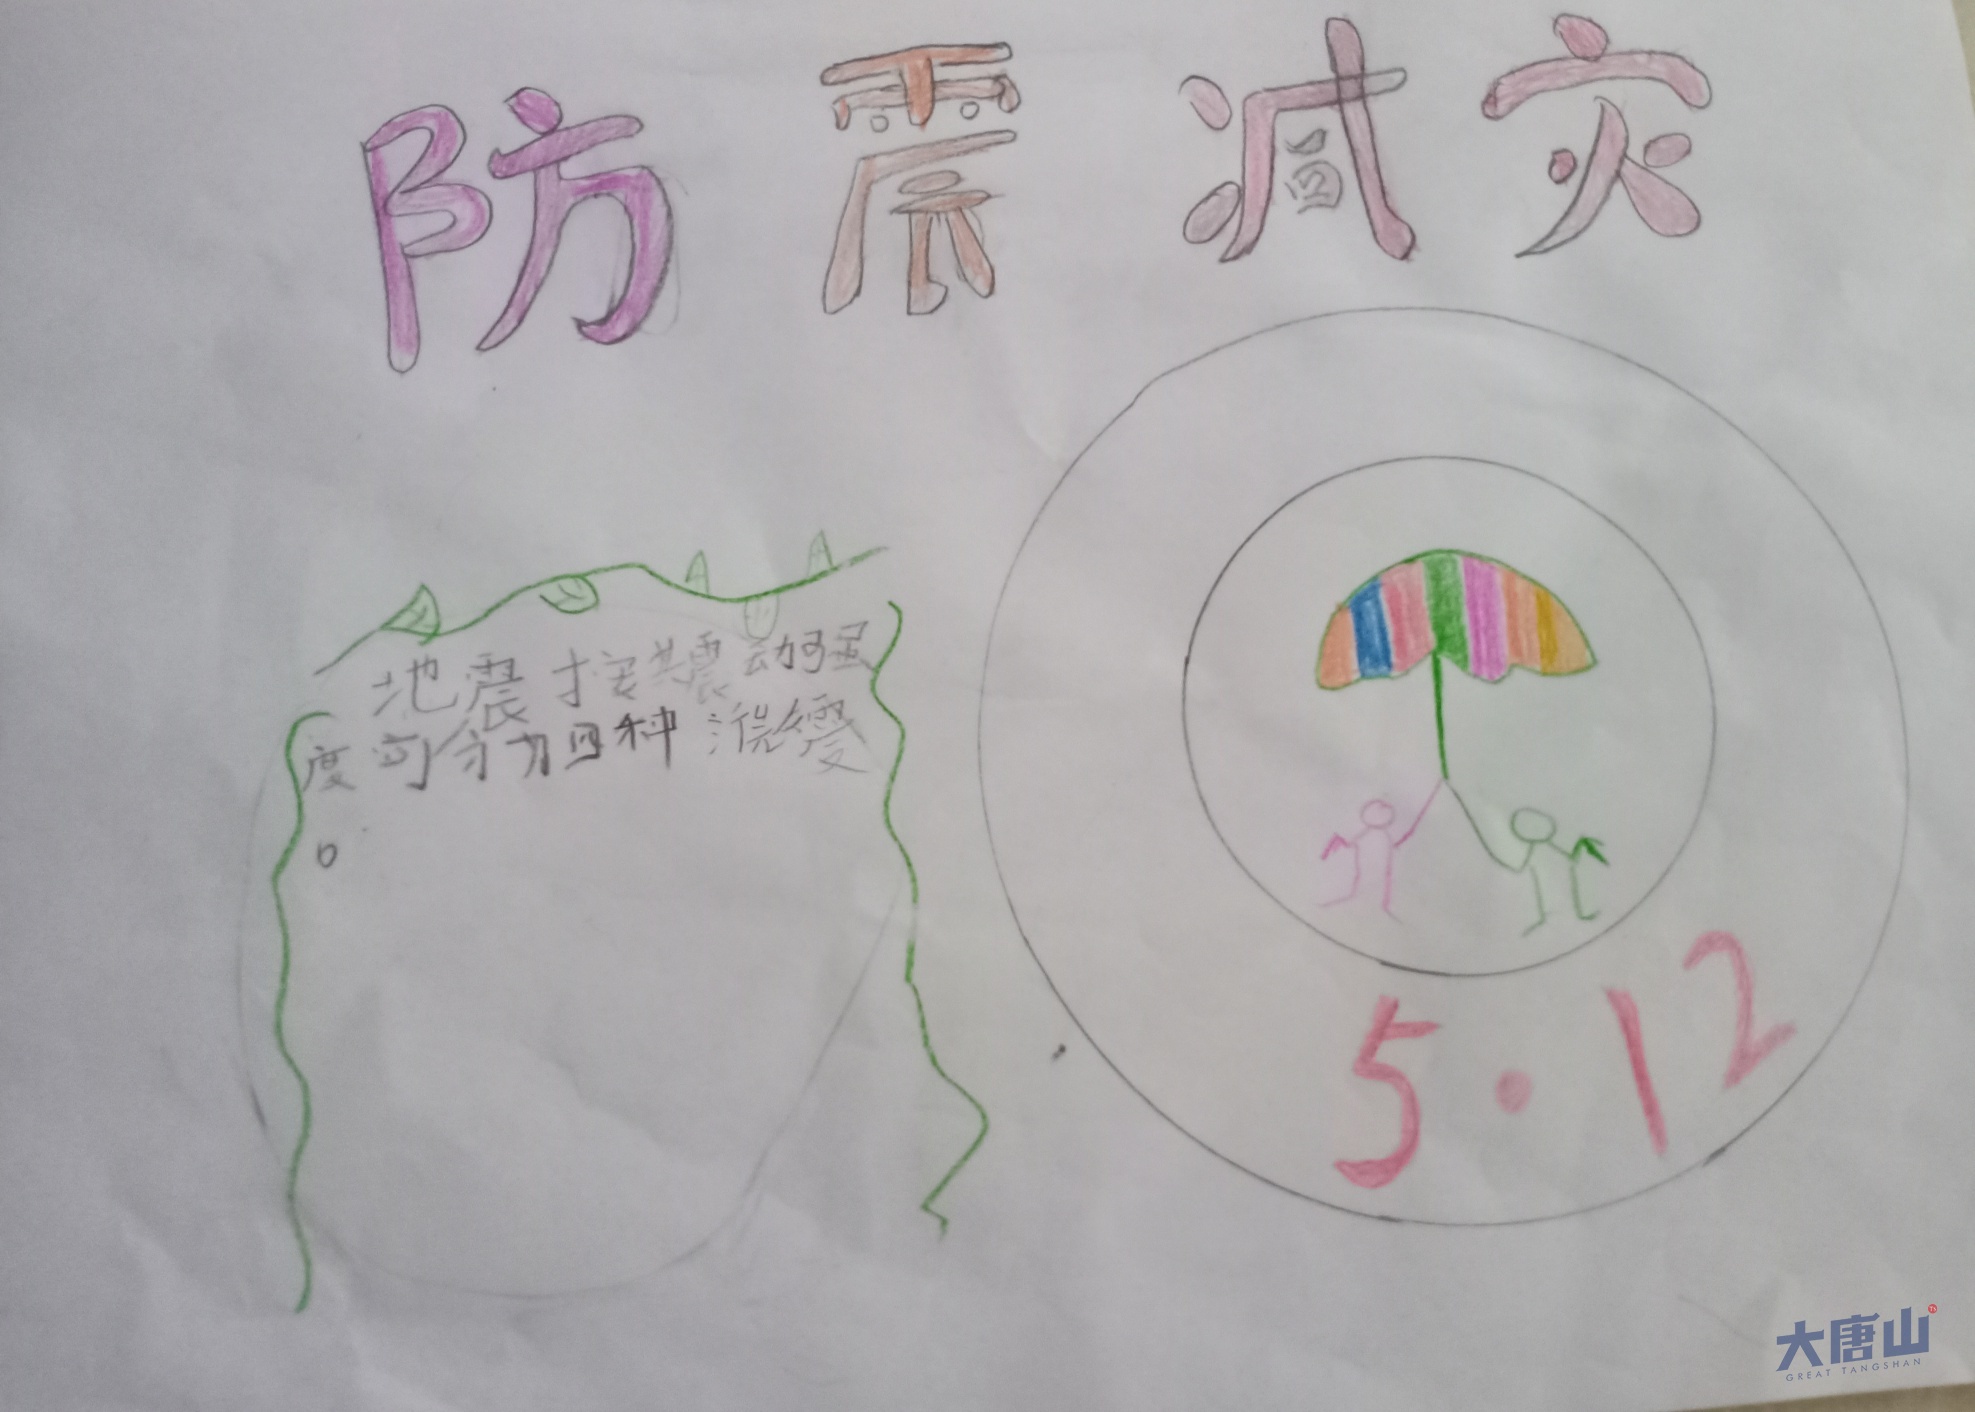 防震减灾
地震按其震动强
度可分为四种
。
5·12
大唐山
GREAT TANGSHAN